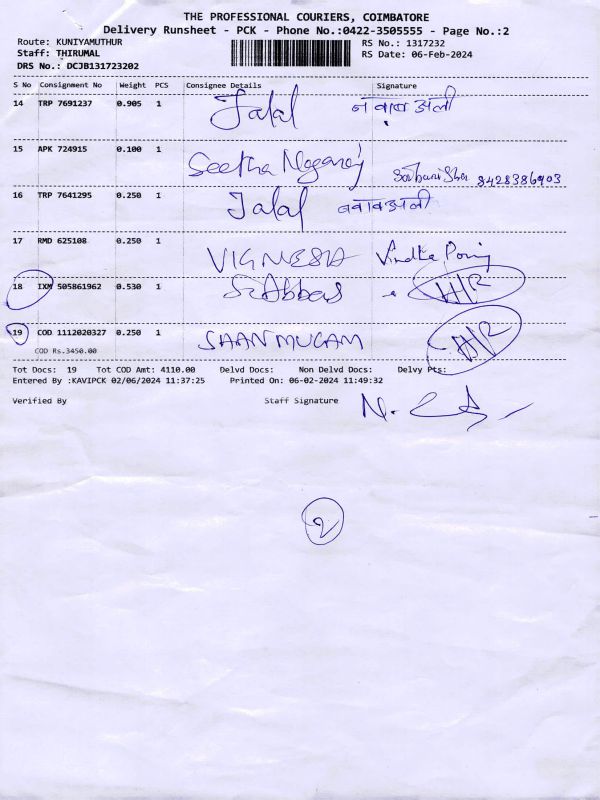 THE PROFESSIONAL COURIERS, COIMBATORE
Delivery Runsheet - PCK - Phone No.:0422-3505555 - Page No.:2
Route: KUNIYAMUTHUR RS No.: 1317232
Staff: THIRUMAL RS Date: 06-Feb-2024
DRS No.: DCJB131723202
S No Consignment No Weight PCS Consignee Details Signature
14 TRP 7691237 0.905 1 Jalal नवाब अली
15 APK 724915 0.100 1 Seetha Nagaraj 8428386903
16 TRP 7641295 0.250 1 Jalal नवाब अली
17 RMD 625108 0.250 1 VIGNESH
18 IXM 505861962 0.530 1 Abbas H/R
19 COD 1112020327 0.250 1 SHANMUGAM H/R
COD Rs.3450.00
Tot Docs: 19 Tot COD Amt: 4110.00 Delvd Docs: Non Delvd Docs: Delvy Pts:
Entered By :KAVIPCK 02/06/2024 11:37:25 Printed On: 06-02-2024 11:49:32
Verified By Staff Signature
2